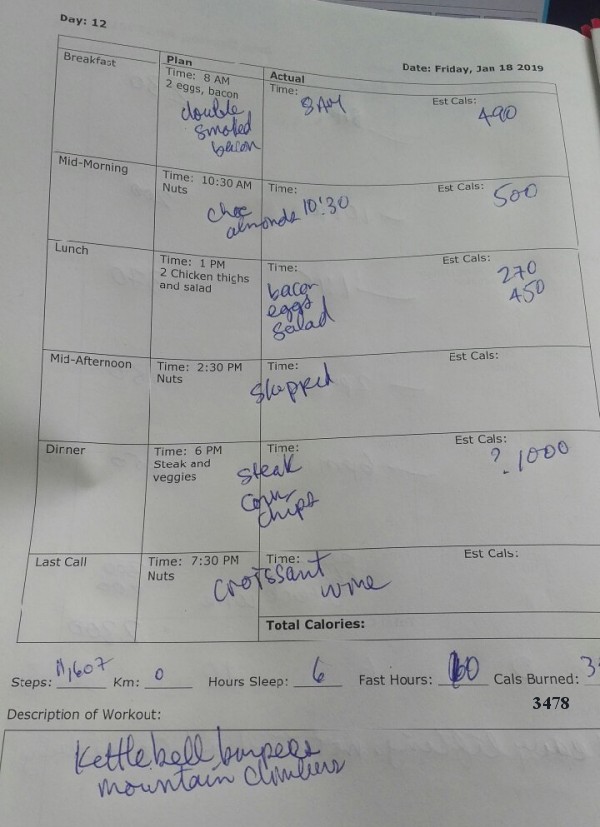 Day: 12
Date: Friday, Jan 18 2019
Plan
Actual
Breakfast
Time: 8 AM
2 eggs, bacon
double
smoked
bacon
Time:
8AM
Est Cals:
490
Mid-Morning
Time: 10:30 AM
Nuts
Time:
choc
almonds 10:30
Est Cals:
500
Lunch
Time: 1 PM
2 Chicken thichs
and salad
Time:
bacon
eggs
salad
Est Cals:
270
450
Mid-Afternoon
Time: 2:30 PM
Nuts
Time:
skipped
Est Cals:
Dinner
Time: 6 PM
Steak and
veggies
Time:
steak
corn
chips
Est Cals:
? 1000
Last Call
Time: 7:30 PM
Nuts
Time:
croissant
wine
Est Cals:
Total Calories:
Steps: 11,607 Km: 0 Hours Sleep: 6 Fast Hours: Cals Burned: 3
3478
Description of Workout:
Kettlebell burpees
mountain climbers